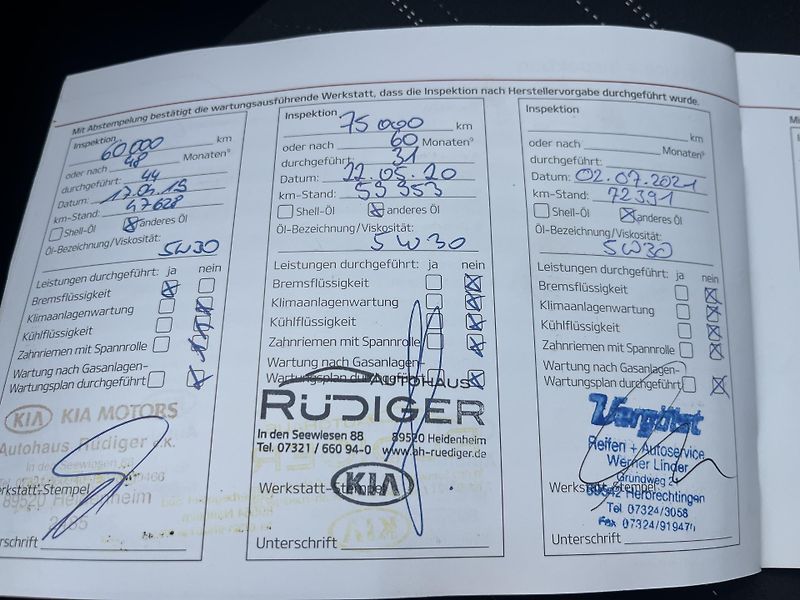 Mit Abstempelung bestätigt die wartungsausführende Werkstatt, dass die Inspektion nach Herstellervorgabe durchgeführt wurde.
Inspektion
60000 km
oder nach 48 Monaten
durchgeführt: 44
Datum: 17.04.19
km-Stand: 47628
Shell-Öl anderes Öl
Öl-Bezeichnung/Viskosität:
5W30
Leistungen durchgeführt: ja nein
Bremsflüssigkeit
Klimaanlagenwartung
Kühlflüssigkeit
Zahnriemen mit Spannrolle
Wartung nach Gasanlagen-
Wartungsplan durchgeführt
KIA KIA MOTORS
Autohaus Rüdiger e.K.
In den Seewiesen 88
89520 Heidenheim
Werkstatt-Stempel
Unterschrift
Inspektion
75000 km
oder nach 60 Monaten
durchgeführt: 31
Datum: 22.05.20
km-Stand: 53353
Shell-Öl anderes Öl
Öl-Bezeichnung/Viskosität:
5W30
Leistungen durchgeführt: ja nein
Bremsflüssigkeit
Klimaanlagenwartung
Kühlflüssigkeit
Zahnriemen mit Spannrolle
Wartung nach Gasanlagen-
Wartungsplan durchgeführt
AUTOHAUS
RÜDIGER
In den Seewiesen 88 89520 Heidenheim
Tel. 07321 / 660 94-0 www.ah-ruediger.de
Werkstatt-Stempel
KIA
KIA
Unterschrift
Inspektion
km
oder nach Monaten
durchgeführt:
Datum: 02.07.2021
km-Stand: 72391
Shell-Öl anderes Öl
Öl-Bezeichnung/Viskosität:
5W30
Leistungen durchgeführt: ja nein
Bremsflüssigkeit
Klimaanlagenwartung
Kühlflüssigkeit
Zahnriemen mit Spannrolle
Wartung nach Gasanlagen-
Wartungsplan durchgeführt
Vergölst
Reifen + Autoservice
Werner Linder
Grundweg 2
Werkstatt-Stempel
89542 Herbrechtingen
Tel 07324/3058
Fax 07324/919470
Unterschrift